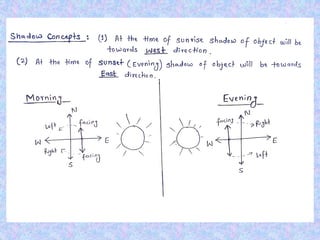 Shadow Concepts : (1) At the time of sunrise shadow of object will be
towards West direction.
(2) At the time of sunset (Evening) shadow of object will be towards
East direction.
Morning
N
left
facing
W
E
Right
facing
S
Evening
N
facing
Right
W
E
left
S